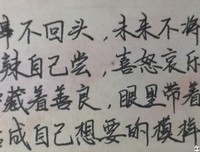 不回头，未来不将
辣自己尝，喜怒哀乐
藏着善良，眼里带着
成自己想要的模样